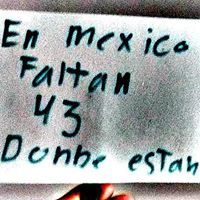 En mexico
Faltan
43
Donde estan